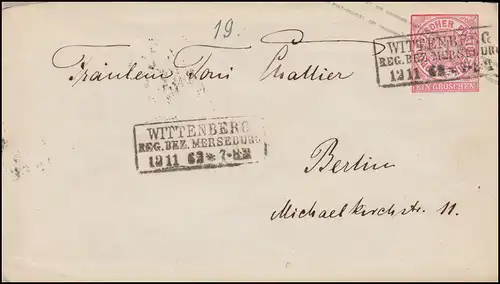 19.
WITTENBERG
REG. BEZ. MERSEBURG
12 11
EIN GROSCHEN
Fräulein Toni Chattier
WITTENBERG
REG. BEZ. MERSEBURG
12 11 63 * 7-8
Berlin
Michaelkirchstr. 11.